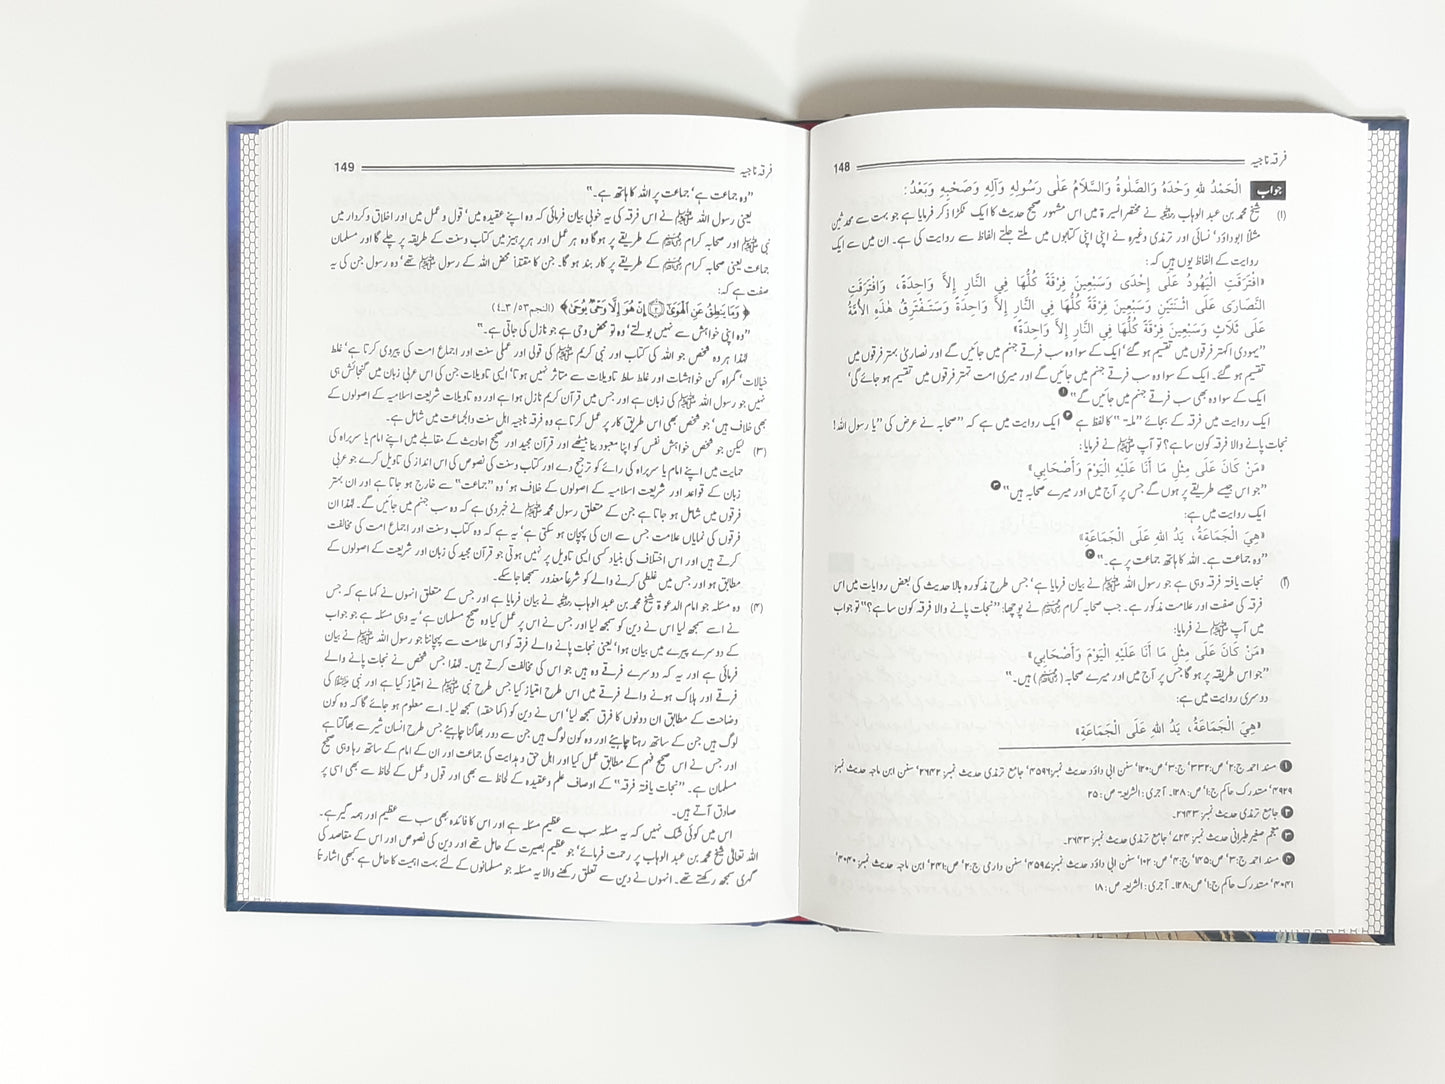 فرقہ ناجیہ 148
جواب الْحَمْدُ لِلّٰهِ وَحْدَهُ وَالصَّلٰوةُ وَالسَّلَامُ عَلٰى رَسُولِهِ وَآلِهِ وَصَحْبِهِ وَبَعْدُ:
(۱) شیخ محمد بن عبد الوہاب رحمہ اللہ نے مختصر السیرۃ میں اس مشہور صحیح حدیث کا ایک ٹکڑا ذکر فرمایا ہے جو بہت سے محدثین
مثلاً ابوداؤد‘ نسائی اور ترمذی وغیرہ نے اپنی اپنی کتابوں میں ملتے جلتے الفاظ سے روایت کی ہے۔ ان میں سے ایک
روایت کے الفاظ یوں ہیں کہ:
«افْتَرَقَتِ الْيَهُودُ عَلَى إِحْدَى وَسَبْعِينَ فِرْقَةً كُلُّهَا فِي النَّارِ إِلاَّ وَاحِدَةً، وَافْتَرَقَتِ
النَّصَارَى عَلَى اثْنَتَيْنِ وَسَبْعِينَ فِرْقَةً كُلُّهَا فِي النَّارِ إِلاَّ وَاحِدَةً وَسَتَفْتَرِقُ هٰذِهِ الأُمَّةُ
عَلَى ثَلَاثٍ وَسَبْعِينَ فِرْقَةً كُلُّهَا فِي النَّارِ إِلاَّ وَاحِدَةً»
”یہودی اکہتر فرقوں میں تقسیم ہو گئے‘ ایک کے سوا وہ سب فرقے جہنم میں جائیں گے اور نصاریٰ بہتر فرقوں میں
تقسیم ہو گئے۔ ایک کے سوا وہ سب فرقے جہنم میں جائیں گے اور میری امت تہتر فرقوں میں تقسیم ہو جائے گی‘
ایک کے سوا وہ بھی سب فرقے جہنم میں جائیں گے“ ❶
ایک روایت میں فرقہ کے بجائے ”ملۃ“ کا لفظ ہے ❷ ایک روایت میں ہے کہ ”صحابہ نے عرض کی ”یا رسول اللہ!
نجات پانے والا فرقہ کون سا ہے؟ تو آپ ﷺ نے فرمایا:
«مَنْ كَانَ عَلَى مِثْلِ مَا أَنَا عَلَيْهِ الْيَوْمَ وَأَصْحَابِي»
”جو اس جیسے طریقے پر ہوں گے جس پر آج میں اور میرے صحابہ ہیں“ ❸
ایک روایت میں ہے:
«هِيَ الْجَمَاعَةُ، يَدُ اللهِ عَلَى الْجَمَاعَةِ»
”وہ جماعت ہے۔ اللہ کا ہاتھ جماعت پر ہے۔“ ❹
(۲) نجات یافتہ فرقہ وہی ہے جو رسول اللہ ﷺ نے بیان فرمایا ہے‘ جس طرح مذکورہ بالا حدیث کی بعض روایات میں اس
فرقہ کی صفت اور علامت مذکور ہے۔ جب صحابہ کرام رضی اللہ عنہم نے پوچھا: ”نجات پانے والا فرقہ کون سا ہے؟“ تو جواب
میں آپ ﷺ نے فرمایا:
«مَنْ كَانَ عَلَى مِثْلِ مَا أَنَا عَلَيْهِ الْيَوْمَ وَأَصْحَابِي»
”جو اس طریقہ پر ہو گا جس پر آج میں اور میرے صحابہ (رضی اللہ عنہم) ہیں۔“
دوسری روایت میں ہے:
«هِيَ الْجَمَاعَةُ، يَدُ اللهِ عَلَى الْجَمَاعَةِ»
❶ مسند احمد ج:۲‘ ص:۳۳۲‘ ج:۳‘ ص:۱۲۰‘ سنن ابی داؤد حدیث نمبر:۴۵۹۶‘ جامع ترمذی حدیث نمبر: ۲۶۴۲‘ سنن ابن ماجہ حدیث نمبر:
۳۹۲۹‘ مستدرک حاکم ج:۱‘ ص:۱۲۸۔ آجری: الشریعۃ ص: ۲۵
❷ جامع ترمذی حدیث نمبر: ۲۶۴۳۔
❸ معجم صغیر طبرانی حدیث نمبر: ۷۲۴‘ جامع ترمذی حدیث نمبر: ۲۶۴۳۔
❹ مسند احمد ج:۳‘ ص:۱۴۵‘ ج:۴‘ ص: ۱۰۲‘ سنن ابی داؤد حدیث نمبر:۴۵۹۷‘ سنن دارمی ج:۲‘ ص: ۲۴۱‘ ابن ماجہ حدیث نمبر: ۴۰۴۰‘
۴۰۴۱‘ مستدرک حاکم ج:۱‘ ص:۱۲۸۔ آجری: الشریعہ ص: ۱۸
فرقہ ناجیہ 149
”وہ جماعت ہے‘ جماعت پر اللہ کا ہاتھ ہے۔“
یعنی رسول اللہ ﷺ نے اس فرقہ کی یہ خوبی بیان فرمائی کہ وہ اپنے عقیدہ میں‘ قول و عمل میں اور اخلاق و کردار میں
نبی ﷺ اور صحابہ کرام رضی اللہ عنہم کے طریقے پر ہو گا وہ ہر عمل اور ہر پرہیز میں کتاب و سنت کے طریقہ پر چلے گا اور مسلمان
جماعت یعنی صحابہ کرام رضی اللہ عنہم کے طریقے پر کاربند ہو گا۔ جن کا مقتدا محض اللہ کے رسول ﷺ تھے‘ وہ رسول جن کی یہ
صفت ہے کہ:
﴿وَمَا يَنطِقُ عَنِ الْهَوَىٰ ﴿٣﴾ إِنْ هُوَ إِلَّا وَحْيٌ يُوحَىٰ﴾ (النجم۵۳/ ۳۔۴)
”وہ اپنی خواہش سے نہیں بولتے‘ وہ تو محض وحی ہے جو نازل کی جاتی ہے۔“
لہٰذا ہر وہ شخص جو اللہ کی کتاب اور نبی کریم ﷺ کی قولی اور عملی سنت اور اجماع امت کی پیروی کرتا ہے‘ غلط
خیالات‘ گمراہ کن خواہشات اور غلط سلط تاویلات سے متاثر نہیں ہوتا‘ ایسی تاویلات جن کی اس عربی زبان میں گنجائش ہی
نہیں جو رسول اللہ ﷺ کی زبان ہے اور جس میں قرآن کریم نازل ہوا ہے اور وہ تاویلات شریعت اسلامیہ کے اصولوں کے
بھی خلاف ہیں‘ جو شخص بھی اس طریق کار پر عمل کرتا ہے وہ فرقہ ناجیہ اہل سنت والجماعت میں شامل ہے۔
(۳) لیکن جو شخص خواہش نفس کو اپنا معبود بنا بیٹھے اور قرآن مجید اور صحیح احادیث کے مقابلے میں اپنے امام یا سربراہ کی
حمایت میں اپنے امام یا سربراہ کی رائے کو ترجیح دے اور کتاب و سنت کی نصوص کی اس انداز کی تاویل کرے جو عربی
زبان کے قواعد اور شریعت اسلامیہ کے اصولوں کے خلاف ہو‘ وہ ”جماعت“ سے خارج ہو جاتا ہے اور ان بہتر
فرقوں میں شامل ہو جاتا ہے جن کے متعلق رسول محمد ﷺ نے خبر دی ہے کہ وہ سب جہنم میں جائیں گے۔ لہٰذا ان
فرقوں کی نمایاں علامت جس سے ان کی پہچان ہو سکتی ہے‘ یہ ہے کہ وہ کتاب و سنت اور اجماع امت کی مخالفت
کرتے ہیں اور اس اختلاف کی بنیاد کسی ایسی تاویل پر نہیں ہوتی جو قرآن مجید کی زبان اور شریعت کے اصولوں کے
مطابق ہو اور جس میں غلطی کرنے والے کو شرعاً معذور سمجھا جا سکے۔
(۴) وہ مسئلہ جو امام الدعوۃ شیخ محمد بن عبد الوہاب رحمہ اللہ نے بیان فرمایا ہے اور جس کے متعلق انہوں نے کہا ہے کہ جس
نے اسے سمجھ لیا اس نے دین کو سمجھ لیا اور جس نے اس پر عمل کیا وہ صحیح مسلمان ہے‘ یہ وہی مسئلہ ہے جو جواب
کے دوسرے پیرے میں بیان ہوا‘ یعنی نجات پانے والے فرقہ کو اس علامت سے پہچاننا جو رسول اللہ ﷺ نے بیان
فرمائی ہے اور یہ کہ دوسرے فرقے وہ ہیں جو اس کی مخالفت کرتے ہیں۔ لہٰذا جس شخص نے نجات پانے والے
فرقے اور ہلاک ہونے والے فرقے میں اس طرح امتیاز کیا جس طرح نبی ﷺ نے امتیاز کیا ہے اور نبی علیہ السلام کی
وضاحت کے مطابق ان دونوں کا فرق سمجھ لیا‘ اس نے دین کو (کماحقہ) سمجھ لیا۔ اسے معلوم ہو جائے گا کہ وہ کون
لوگ ہیں جن کے ساتھ رہنا چاہیئے اور وہ کون لوگ ہیں جن سے دور بھاگنا چاہیئے جس طرح انسان شیر سے بھاگتا ہے
اور جس نے اس صحیح فہم کے مطابق عمل کیا اور اہل حق و ہدایت کی جماعت اور ان کے امام کے ساتھ رہا وہی صحیح
مسلمان ہے۔ ”نجات یافتہ فرقہ“ کے اوصاف علم و عقیدہ کے لحاظ سے بھی اور قول و عمل کے لحاظ سے بھی اسی پر
صادق آتے ہیں۔
اس میں کوئی شک نہیں کہ یہ مسئلہ سب سے عظیم مسئلہ ہے اور اس کا فائدہ بھی سب سے عظیم اور ہمہ گیر ہے۔
اللہ تعالیٰ شیخ محمد بن عبد الوہاب پر رحمت فرمائے‘ جو عظیم بصیرت کے حامل تھے اور دین کی نصوص اور اس کے مقاصد کی
گہری سمجھ رکھتے تھے۔ انہوں نے دین سے تعلق رکھنے والا یہ مسئلہ جو مسلمانوں کے لئے بہت اہمیت کا حامل ہے کبھی اشارتاً